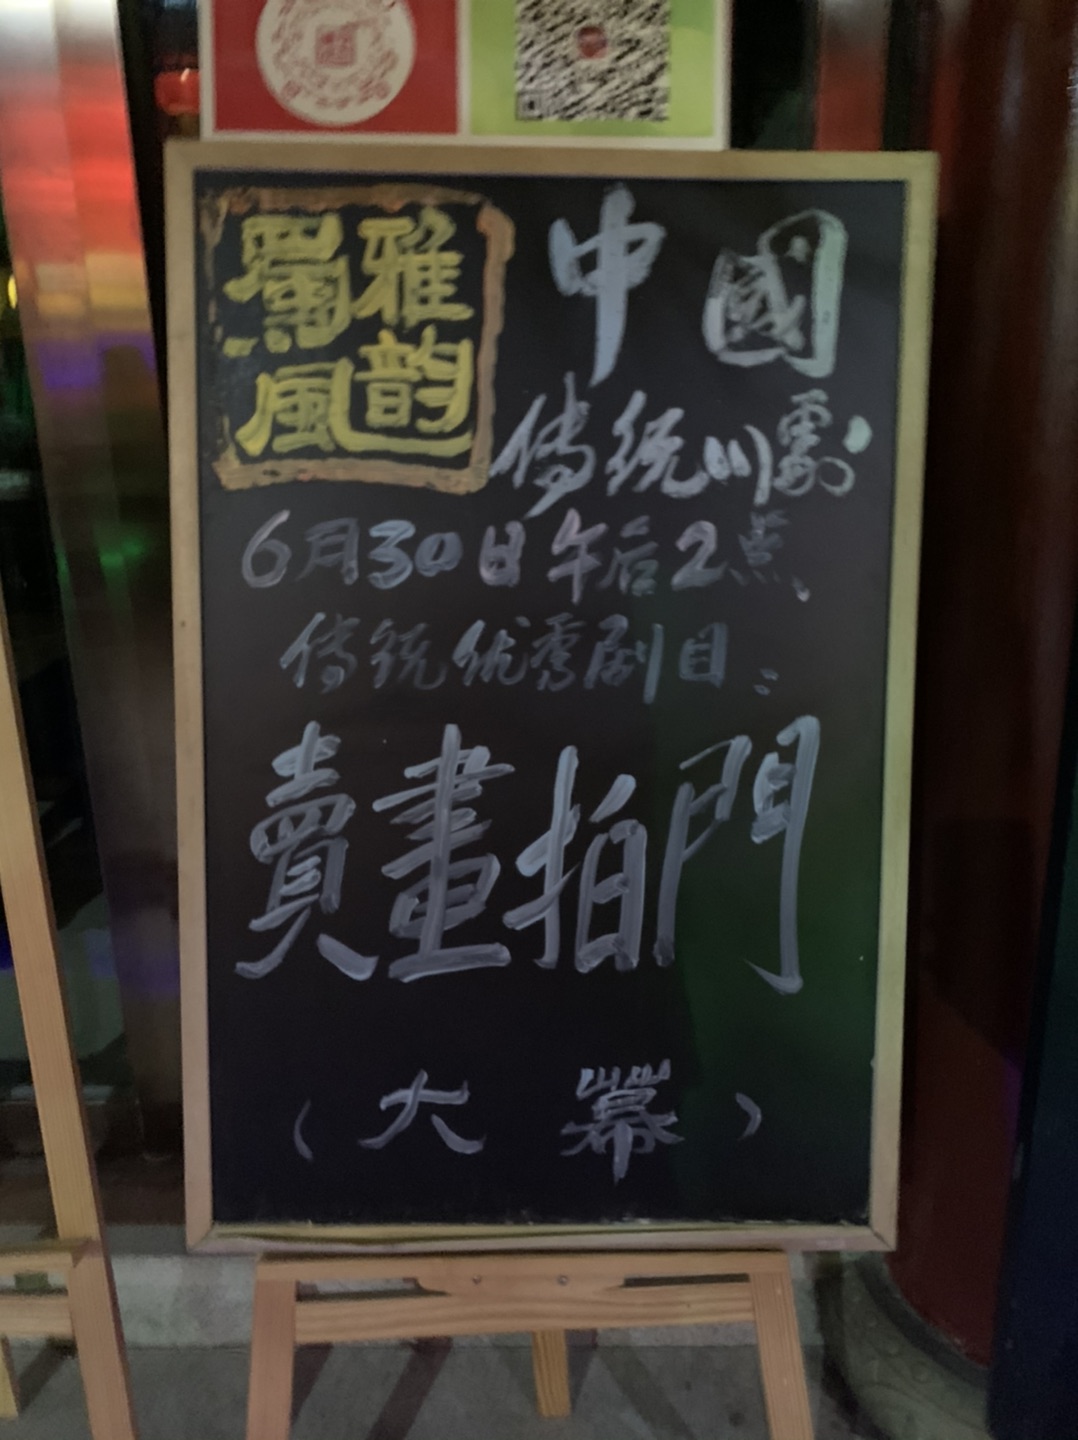 蜀風雅韵
中國
傳統川劇
6月30日午后2点
传统优秀剧目：
賣畫拍門
（大幕）